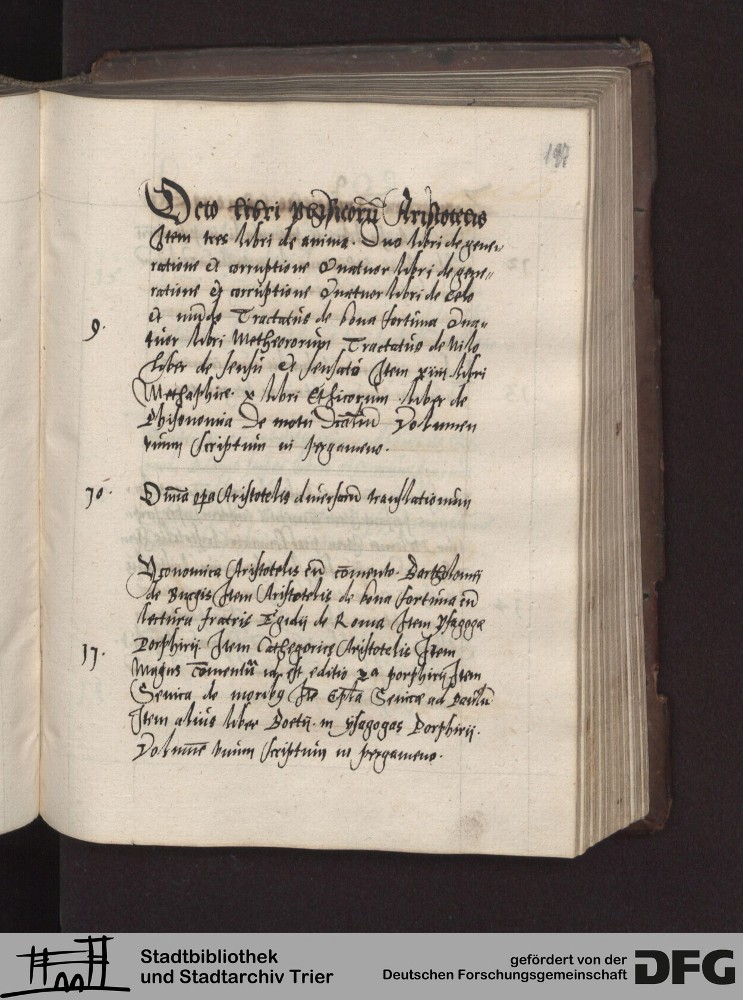 Octo libri phisicorũ Aristotelis
Item tres libri de anima. Duo libri de gene-
ratione et corruptione Quatuor libri de gene-
ratione et corruptione Quatuor libri de Celo
et mũdo Tractatus de bona fortuna Qua-
9.
tuor libri Metheororum Tractatus de Nilo
Liber de sensu et sensato Item xiiii libri
Methaphice. x libri Ethicorum liber de
Phisonomia De motu Volumen
vnum scriptum in pergameno.
10.
Omnia opa Aristotelis diuersarũ translationum
Yconomica Aristotelis cũ cõmento. Bartholomei
de Brugis Item Aristotelis de bona fortuna cũ
lectura fratris Egidij de Roma Item ysagoge
11.
Porphirij Item Cathegorice Aristotelis Item
Magnus cõmentũ id est editio 2a porphirij Item
Seneca de moribus Itẽ Epla Senece ad Paulũ
Item alius liber Boetij in ysagogas Porphirij.
Volumẽ vnum scriptum in pergameno.
Stadtbibliothek
und Stadtarchiv Trier
gefördert von der
Deutschen Forschungsgemeinschaft
DFG